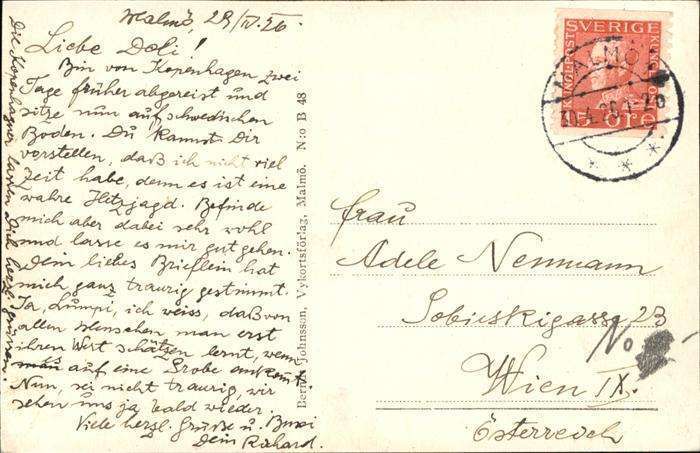 Malmö, 29/IV. 26.
Liebe Doli!
Bin von Kopenhagen zwei
Tage früher abgereist und
sitze nun auf schwedischen
Boden. Du kannst Dir
vorstellen, daß ich nicht viel
Zeit habe, denn es ist eine
wahre Hetzjagd. Befinde
mich aber dabei sehr wohl
und lasse es mir gut gehen.
Dein liebes Brieflein hat
mich ganz traurig gestimmt.
Ja, Lumpi, ich weiss, daß von
allen Menschen man erst
ihren Wert schätzen lernt, wenn
man auf eine Probe ankommt.
Nun, sei nicht traurig, wir
sehen uns ja bald wieder.
Viele herzl. Grüße u. Bussi
Dein Richard.
Die Kopenhagner lassen Dich herzl. grüssen.
Johnsson, Vykortsförlag, Malmö. N:o B 48
SVERIGE
15 ÖRE
MALMÖ
Frau
Adele Neumann
Sobieskigasse 23
No
Wien IX.
Österreich